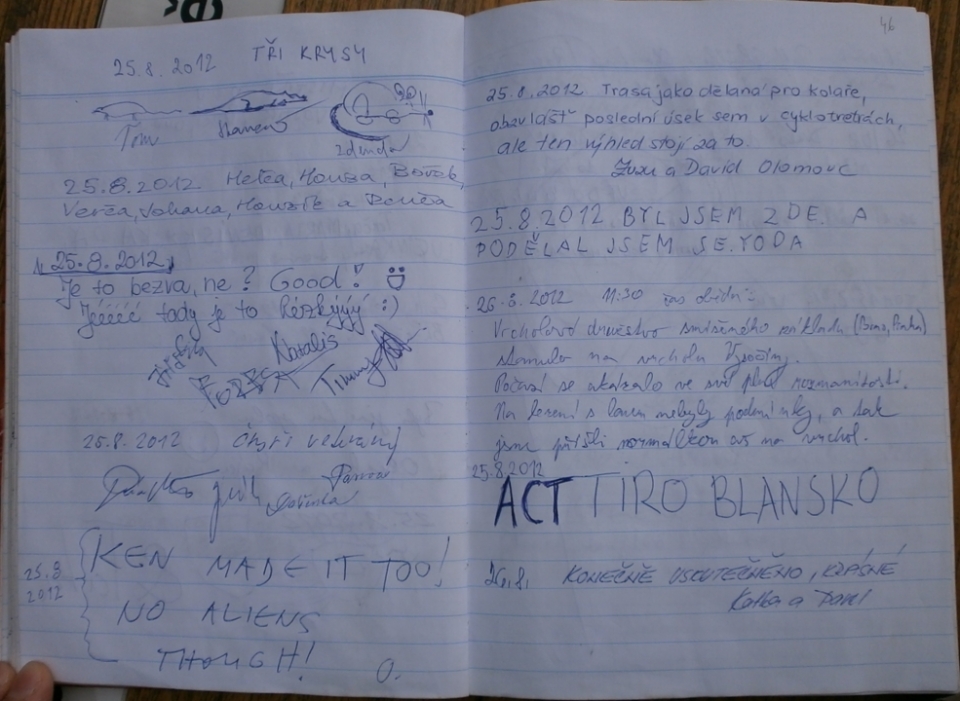 25.8.2012 TŘI KRYSY
Tom
zdenda
25.8.2012 Helča, Honza, Bořek,
Verča, Johana, Honzík a
25.8.2012
Je to bezva, ne? Good!
Jéééé tady je to hézkýýý :)
Natálie
Timmy
25.8.2012 čtyři velrány
KEN MADE IT TOO!
25.8
2012
NO ALIENS
THOUGH! O.
46
25.8.2012 Trasa jako dělaná pro kolaře,
obzvlášť poslední úsek sem v cyklotretrách,
ale ten výhled stojí za to
Zuzu a David Olomouc
25.8.2012 BYL JSEM ZDE. A
PODĚLAL JSEM SE. YODA
26.8.2012 11:30 čas oběda:
Vrcholové družstvo smíšeného
stanulo na vrcholu Vysočiny.
Počasí se ukázalo ve své plné rozmanitosti.
Na lezení s lanem nebyly podmínky, a tak
jsme přišli normálkou až na vrchol.
25.8.2012
ACT TIRO BLANSKO
26.8. KONEČNĚ USKUTEČNĚNO, KRÁSNÉ
Katka a Pavel